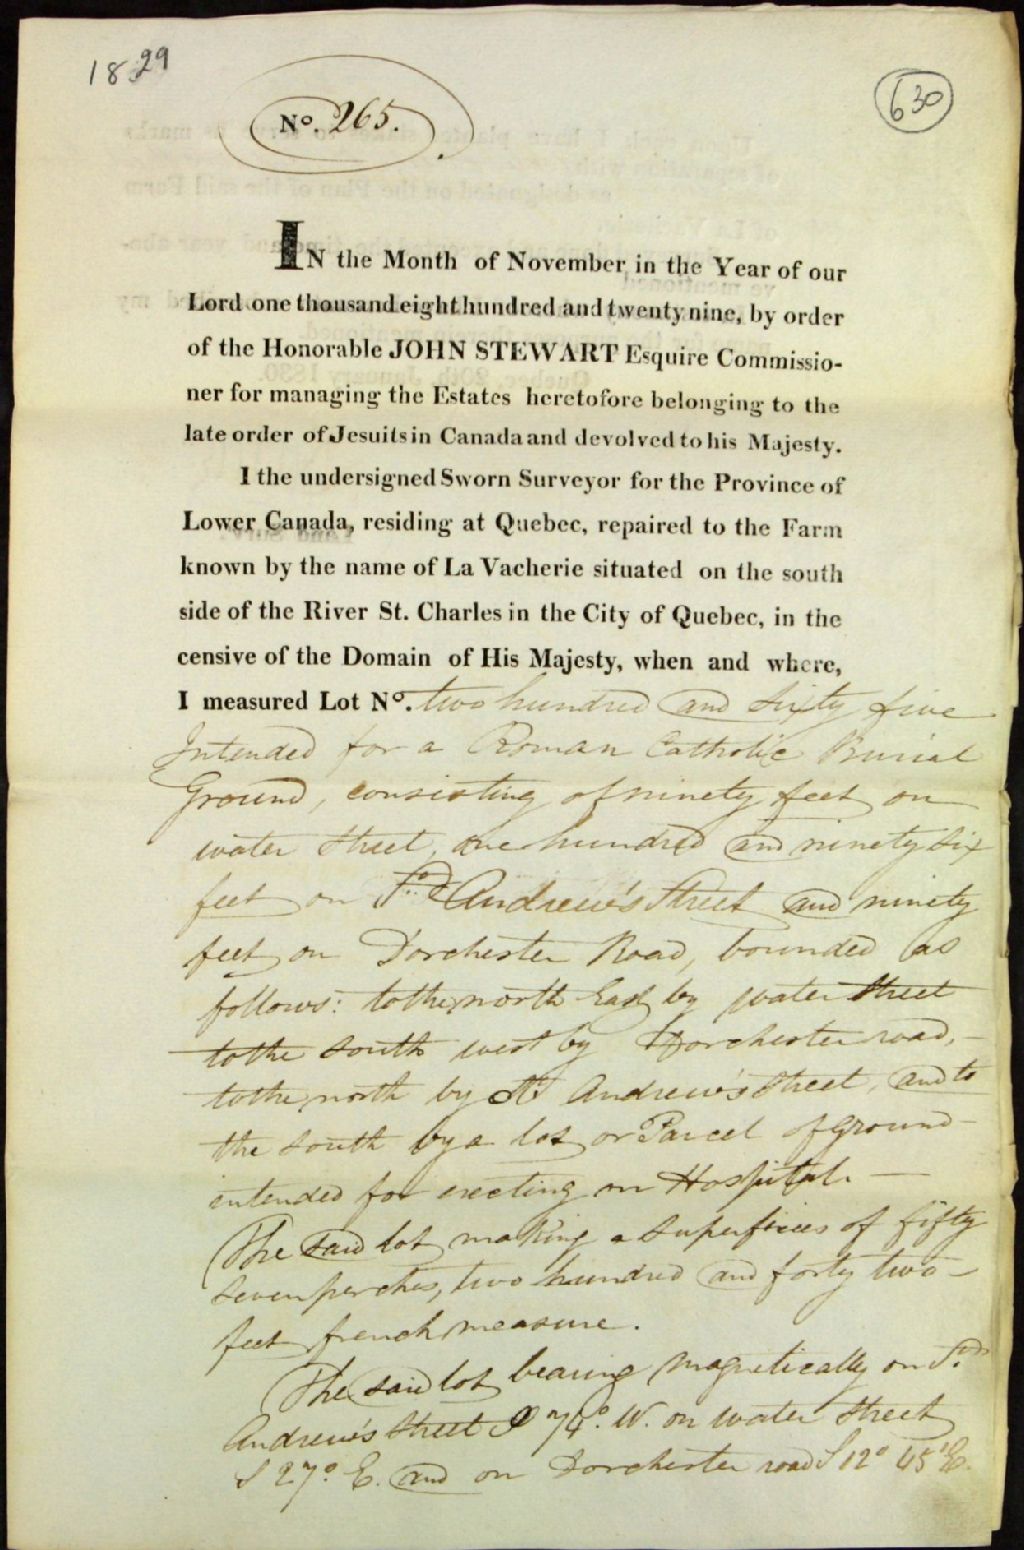 1829
630
No. 265.
IN the Month of November in the Year of our
Lord one thousand eight hundred and twenty nine, by order
of the Honorable JOHN STEWART Esquire Commissio-
ner for managing the Estates heretofore belonging to the
late order of Jesuits in Canada and devolved to his Majesty.
I the undersigned Sworn Surveyor for the Province of
Lower Canada, residing at Quebec, repaired to the Farm
known by the name of La Vacherie situated on the south
side of the River St. Charles in the City of Quebec, in the
censive of the Domain of His Majesty, when and where,
I measured Lot No. two hundred and sixty five
Intended for a Roman Catholic Burial
Ground, consisting of ninety feet on
water Street, one hundred and ninety six
feet on St Andrew's Street and ninety
feet on Dorchester Road, bounded as
follows: to the north East by water Street
to the south west by Dorchester road,
to the north by St Andrew's Street, and to
the south by a lot or Parcel of Ground
intended for erecting an Hospital. —
The said lot making a Superficies of fifty
seven perches, two hundred and forty two
feet french measure.
The said lot bearing Magnetically on St.
Andrew's Street S 74° W. on water Street
S 27° E. and on Dorchester road S 12° 45' E.